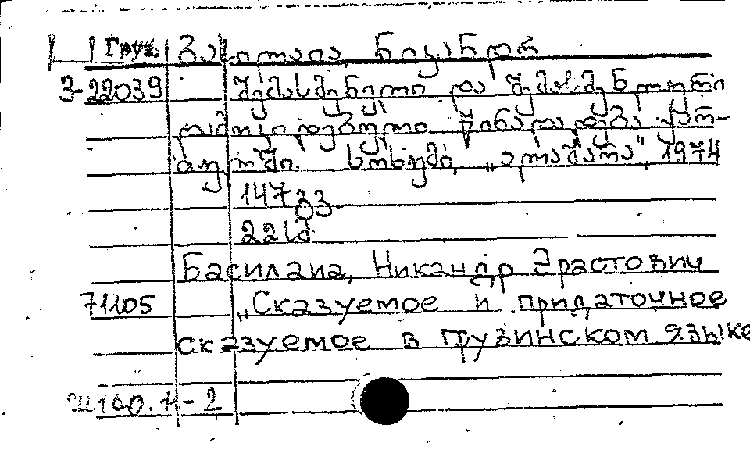 Груз. ბასილაია, ნიკანდრ
З-22039 შემასმენელი და შემასმენლური
დამოკიდებული წინადადება ქარ-
თულში. სოხუმი, „ალაშარა", 1974
147 გვ.
22 სმ
Басилаиа, Никандр Эрастович
71105 „Сказуемое и придаточное
сказуемое в грузинском языке
Ш 160.11-2